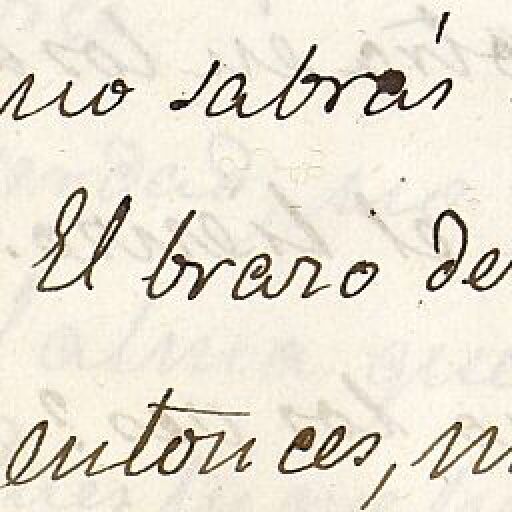 no sabrás
El brazo de
entonces, m